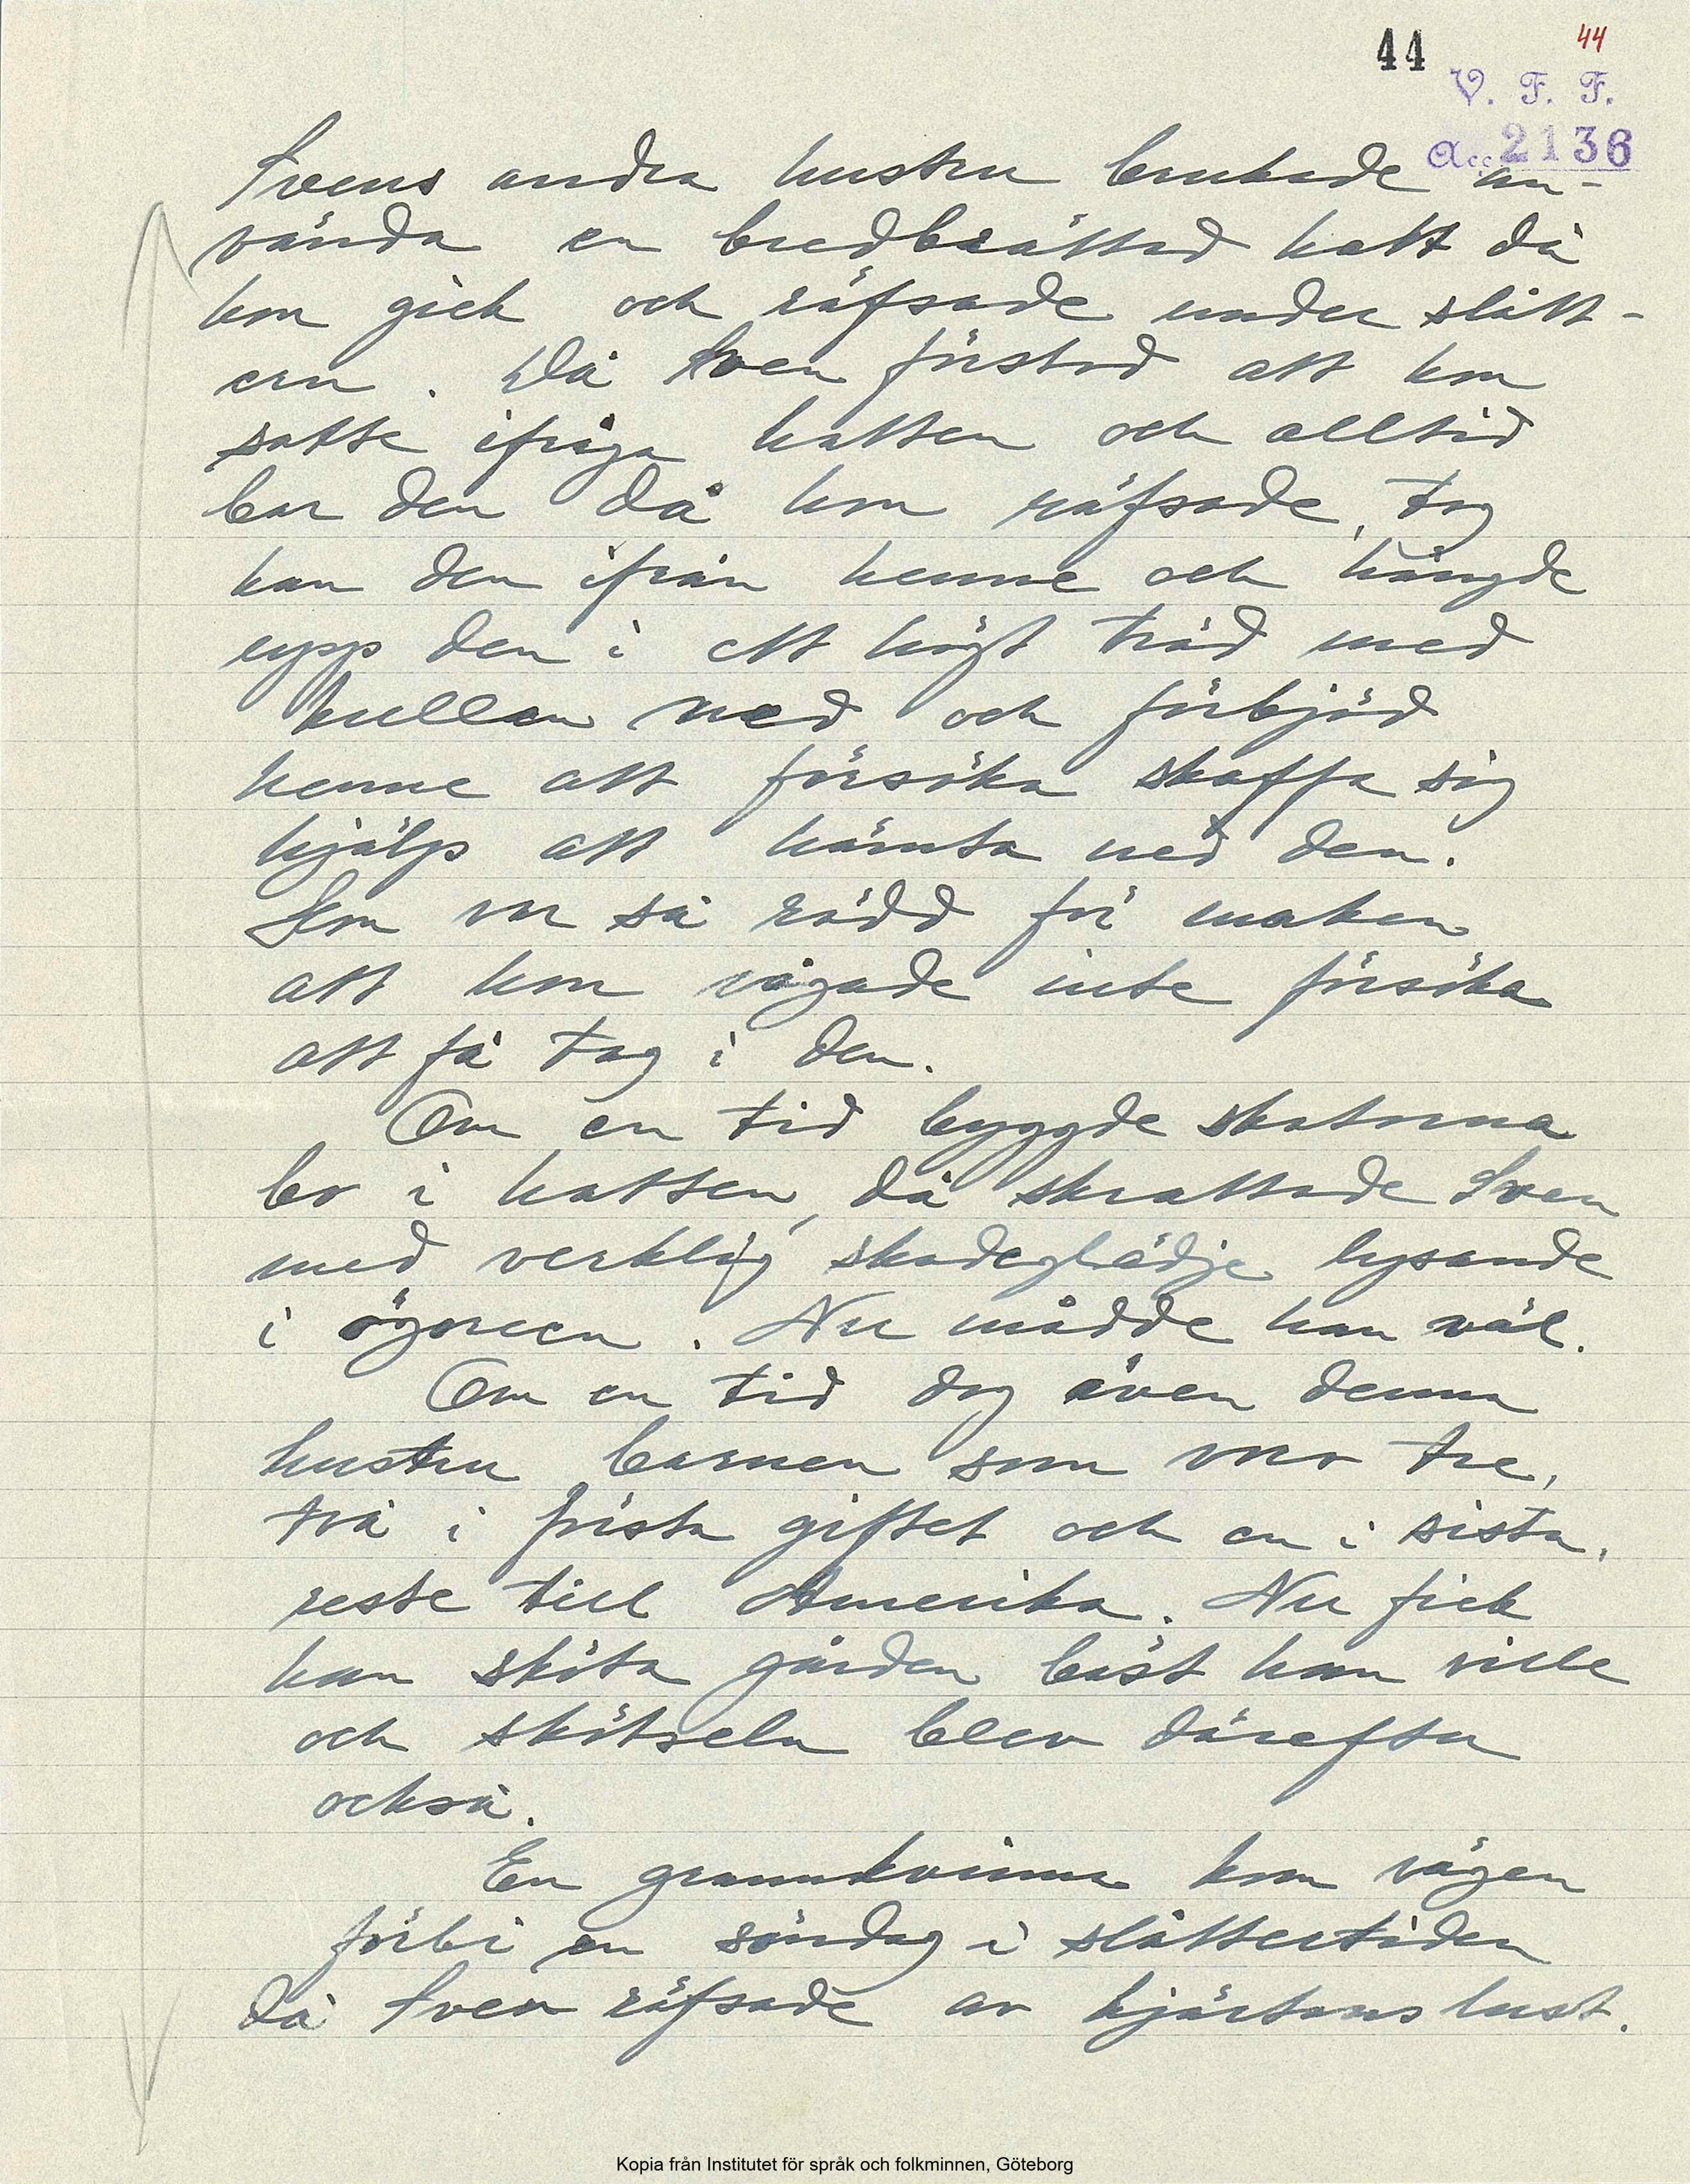 44 44
V. F. F.
Acc. 2136
Svens andra hustru brukade an-
vända en bredbrättad hatt då
hon gick och räfsade under slått-
ern. Då Sven förstod att hon
satte ifråga hatten och alltid
bar den då hon räfsade, tog
han den ifrån henne och hängde
upp den i ett högt träd med
kullen ned och förbjöd
henne att försöka skaffa sig
hjälp att hämta ned den.
Hon var så rädd för maken
att hon vågade inte försöka
att få tag i den.
Om en tid byggde skatorna
bo i hatten, då skrattade Sven
med verklig skadeglädje lysande
i ögonen. Nu mådde han väl.
Om en tid dog även denna
hustru barnen som voro tre,
två i första giftet och en i sista,
reste till Amerika. Nu fick
han sköta gården bäst han ville
och skötseln blev därefter
också.
En grannkvinna kom vägen
förbi en söndag i slåttertiden
då Sven räfsade av hjärtans lust.
Kopia från Institutet för språk och folkminnen, Göteborg